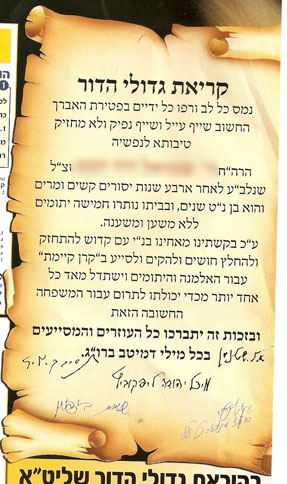 קריאת גדולי הדור
נמס כל לב ורפו כל ידיים בפטירת האברך
החשוב שייף עייל ושייף נפיק ולא מחזיק
טיבותא לנפשיה
הרה"ח וצ"ל
שנלב"ע לאחר ארבע שנות יסורים קשים ומרים
והוא בן נ"ט שנים, ובביתו נותרו חמישה יתומים
ללא משען ומשענה.
ע"כ בקשתינו מאחינו בנ"י עם קדוש להתחזק
ולהחלץ חושים ולהקים ולסייע ב"קרן קיימת"
עבור האלמנה והיתומים וישתדל מאד כל
אחד יותר מכדי יכולתו לתרום עבור המשפחה
החשובה הזאת
ובזכות זה יתברכו כל העוזרים והמסייעים
בכל מילי דמיטב ברו"ג.
מיכל יהודה ליפקוביץ
גדולי הדור שליט"א